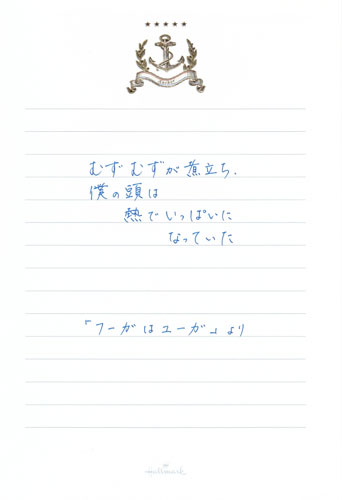 むずむずが煮立ち、
僕の頭は
熱でいっぱいに
なっていた
「フーガはユーガ」より
Hallmark